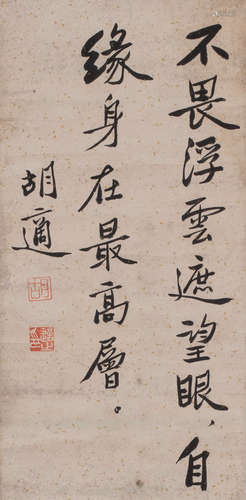 不畏浮雲遮望眼，自
緣身在最高層。
胡適